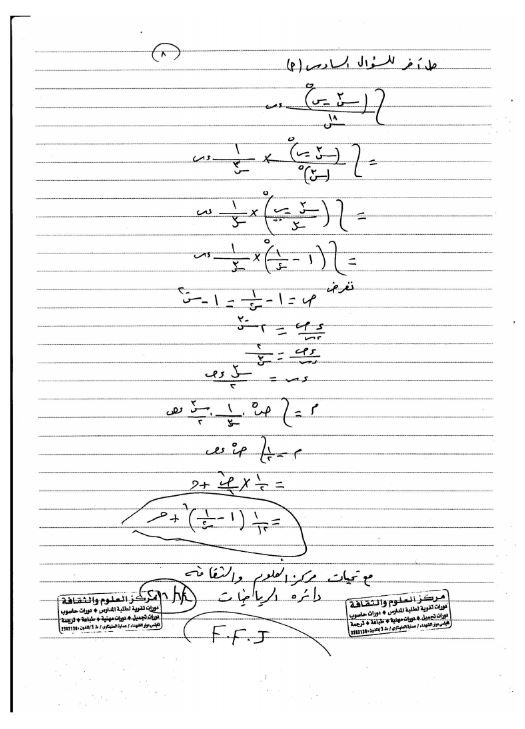 ٨
حل آخر للسؤال السادس (م)
∫ (س٣ − س)٥ / س١٨ ءس
= ∫ (س٣ − س)٥ / (س٣)٥ × ١/س٣ ءس
= ∫ ((س٣ − س) / س٣)٥ × ١/س٣ ءس
= ∫ (١ − ١/س٢)٥ × ١/س٣ ءس
نفرض ص = ١ − ١/س٢ = ١ − س−٢
ءص/ءس = ٢ س−٣
ءص/ءس = ٢/س٣
ءس = س٣/٢ ءص
م = ∫ ص٥ · ١/س٣ · س٣/٢ ءص
م = ١/٢ ∫ ص٥ ءص
= ١/٢ × ص٦/٦ + حـ
= ١/١٢ (١ − ١/س٢)٦ + حـ
مع تحيات مركز العلوم والثقافة
دائرة الرياضيات
F.F.J
مركز العلوم والثقافة
دورات تقوية لطلبة المدارس * دورات حاسوب
دورات تجميل * دورات مهنية * طباعة * ترجمة
مركز العلوم والثقافة
دورات تقوية لطلبة المدارس * دورات حاسوب
دورات تجميل * دورات مهنية * طباعة * ترجمة